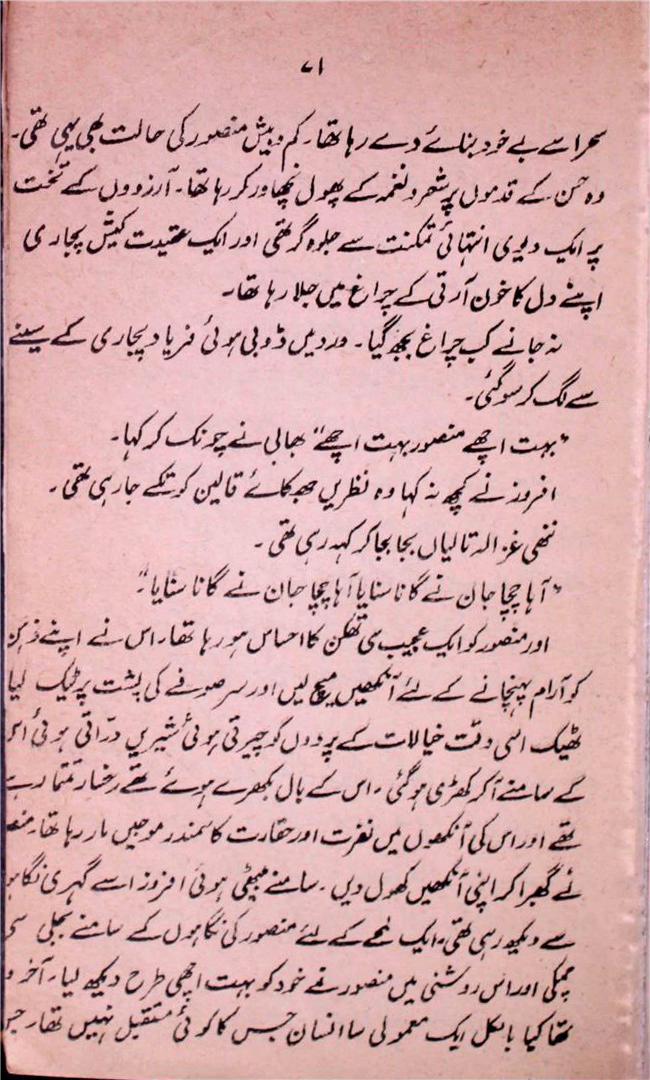 ۷۱
سحر اسے بے خود بنائے دے رہا تھا۔ کم و بیش منصور کی حالت بھی یہی تھی۔
وہ حسن کے قدموں پر شعر و نغمہ کے پھول نچھاور کر رہا تھا۔ آرزووں کے تخت
پر ایک دیوی انتہائی تمکنت سے جلوہ گر تھی اور ایک عقیدت کیش پجاری
اپنے دل کا خون آرتی کے چراغ میں جلا رہا تھا۔
نہ جانے کب چراغ بجھ گیا۔ درد میں ڈوبی ہوئی فریاد پجاری کے سینے
سے لگ کر سو گئی۔
"بہت اچھے منصور بہت اچھے" بھابی نے چونک کر کہا۔
افروز نے کچھ نہ کہا وہ نظریں جھکائے قالین کو تکے جا رہی تھی۔
ننھی غزالہ تالیاں بجا بجا کر کہہ رہی تھی۔
"آہا چچا جان نے گانا سنایا آہا چچا جان نے گانا سنایا"۔
اور منصور کو ایک عجیب سی تھکن کا احساس ہو رہا تھا۔ اس نے اپنے ذہن
کو آرام پہنچانے کے لئے آنکھیں میچ لیں اور سر صوفے کی پشت پر ٹیک لیا
ٹھیک اسی وقت خیالات کے پردوں کو چیرتی ہوئی شیریں درّاتی ہوئی اس
کے سامنے آ کر کھڑی ہو گئی۔ اس کے بال بکھرے ہوئے تھے رخسار تمتما رہے
تھے اور اس کی آنکھوں میں نفرت اور حقارت کا سمندر موجیں مار رہا تھا۔
نے گھبرا کر اپنی آنکھیں کھول دیں۔ سامنے بیٹھی ہوئی افروز اسے گہری نگاہو
سے دیکھ رہی تھی۔ ایک لمحے کے لئے منصور کی نگاہوں کے سامنے بجلی سی
چمکی اور اس روشنی میں منصور نے خود کو بہت اچھی طرح دیکھ لیا۔ آخر و
تھا کیا بالکل ایک معمولی سا انسان جس کا کوئی مستقبل نہیں تھا۔